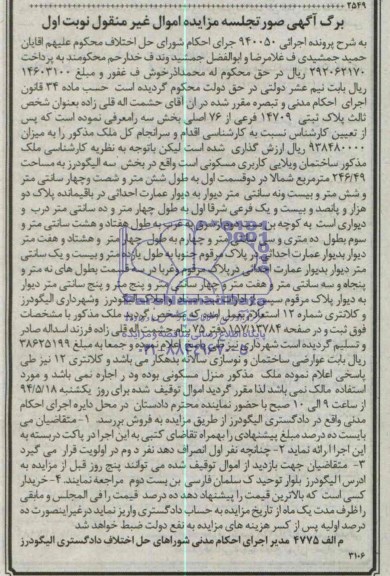 ۲۵۴۹
برگ آگهی صورتجلسه مزایده اموال غیر منقول نوبت اول
به شرح پرونده اجرائی ۹۴۰۰۵۰ جرای احکام شورای حل اختلاف محکوم علیهم اقایان
حمید جمشیدی ف غلامرضا و ابوالفضل جمشید وند ف خدارحم محکومند به پرداخت
۲۹۲۰۶۲۱۷۰ ریال در حق محکوم له محمد اذرخوش ف غفور و مبلغ ۱۴۶۰۳۱۰۰
ریال بابت نیم عشر دولتی در حق دولت محکوم گردیده است حسب ماده ۳۴ قانون
اجرای احکام مدنی و تبصره مقرر شده در ان آقای حشمت اله قلی زاده بعنوان شخص
ثالث پلاک ثبتی ۱۴۷۰۹ فرعی از ۷۶ اصلی بخش سه رامعرفی نموده است که پس
از تعیین کارشناس نسبت به کارشناسی اقدام و سرانجام کل ملک مذکور را به میزان
۹۳۸۴۸۰۰۰۰ ریال ارزش گذاری شده است لیکن باتوجه به نظریه کارشناسی ملک
مذکور ساختمان ویلایی کاربری مسکونی است واقع در بخش سه الیگودرز به مساحت
۲۴۶/۴۹ مترمربع شمالا در دوقسمت اول به طول شش متر و شصت وچهار سانتی متر
و شش متر و بیست ونه سانتی متر دیوار به دیوار عمارت احداثی در باقیمانده پلاک دو
هزار و پانصد و بیست و یک فرعی شرقا اول به طول چهار متر و ده سانتی متر درب و
دیواری است به کوچه بن
سوم بطول ده متری و
دیوار بدیوار عمارت
متر دیوار بدیوار عمارت
پنجاه و سه سانتی متر و هفت متر و چهار
به دیوار پلاک مرقوم
و کلانتری شماره ۱۲ استعلام
فوق ثبت و در صفحه
و تسلیم گردیده است شهرداری نیز طی پاسخ اعلام نموده و جمعا به مبلغ ۳۸۶۲۵۱۹۹
ریال بابت عوارضی ساختمان و نوسازی سالانه بدهکار می باشد و کلانتری ۱۲ نیز طی
پاسخی اعلام نموده ملک مذکور منزل مسکونی بوده ود ر اجاره نمی باشد و مورد
استفاده مالک نمی باشد لذا مقرر گردید اموال توقیف شده برای روز یکشنبه ۹۴/۵/۱۸
از ساعت ۹ الی ۱۰ صبح با حضور نماینده محترم دادستان در محل دایره اجرای احکام
مدنی واقع در دادگستری الیگودرز از طریق مزایده به فروش بررسد. ۱- متقاضیان می
بایست ده درصد مبلغ پیشنهادی را بهمراه تقاضای کتبی به این اجرا در پاکت دربسته به
این اجرا ارائه نمایند ۲- چنانچه نفر اول انصراف دهد نفر د وم در اولویت قرار می گیرد
۳- متقاضیان جهت بازدید از اموال توقیف شده می توانند پنج روز قبل از مزایده به
ادرس الیگودرز بلوار توحید ک سلمان فارسی بن بست دوم مراجعه نمایند. ۴- خریدار
کسی است که بالاترین قیمت را پیشنهاد دهد ده درصد قیمت را فی المجلس و مابقی
را ظرف مدت یک ماه از تاریخ مزایده به حساب دادگستری واریز نماید درغیراینصورت ده
درصد اولیه پس از کسر هزینه های مزایده به نفع دولت ضبط خواهد شد
م الف ۴۷۷۵ مدیر اجرای احکام مدنی شوراهای حل اختلاف دادگستری الیگودرز
۳۱۰۶